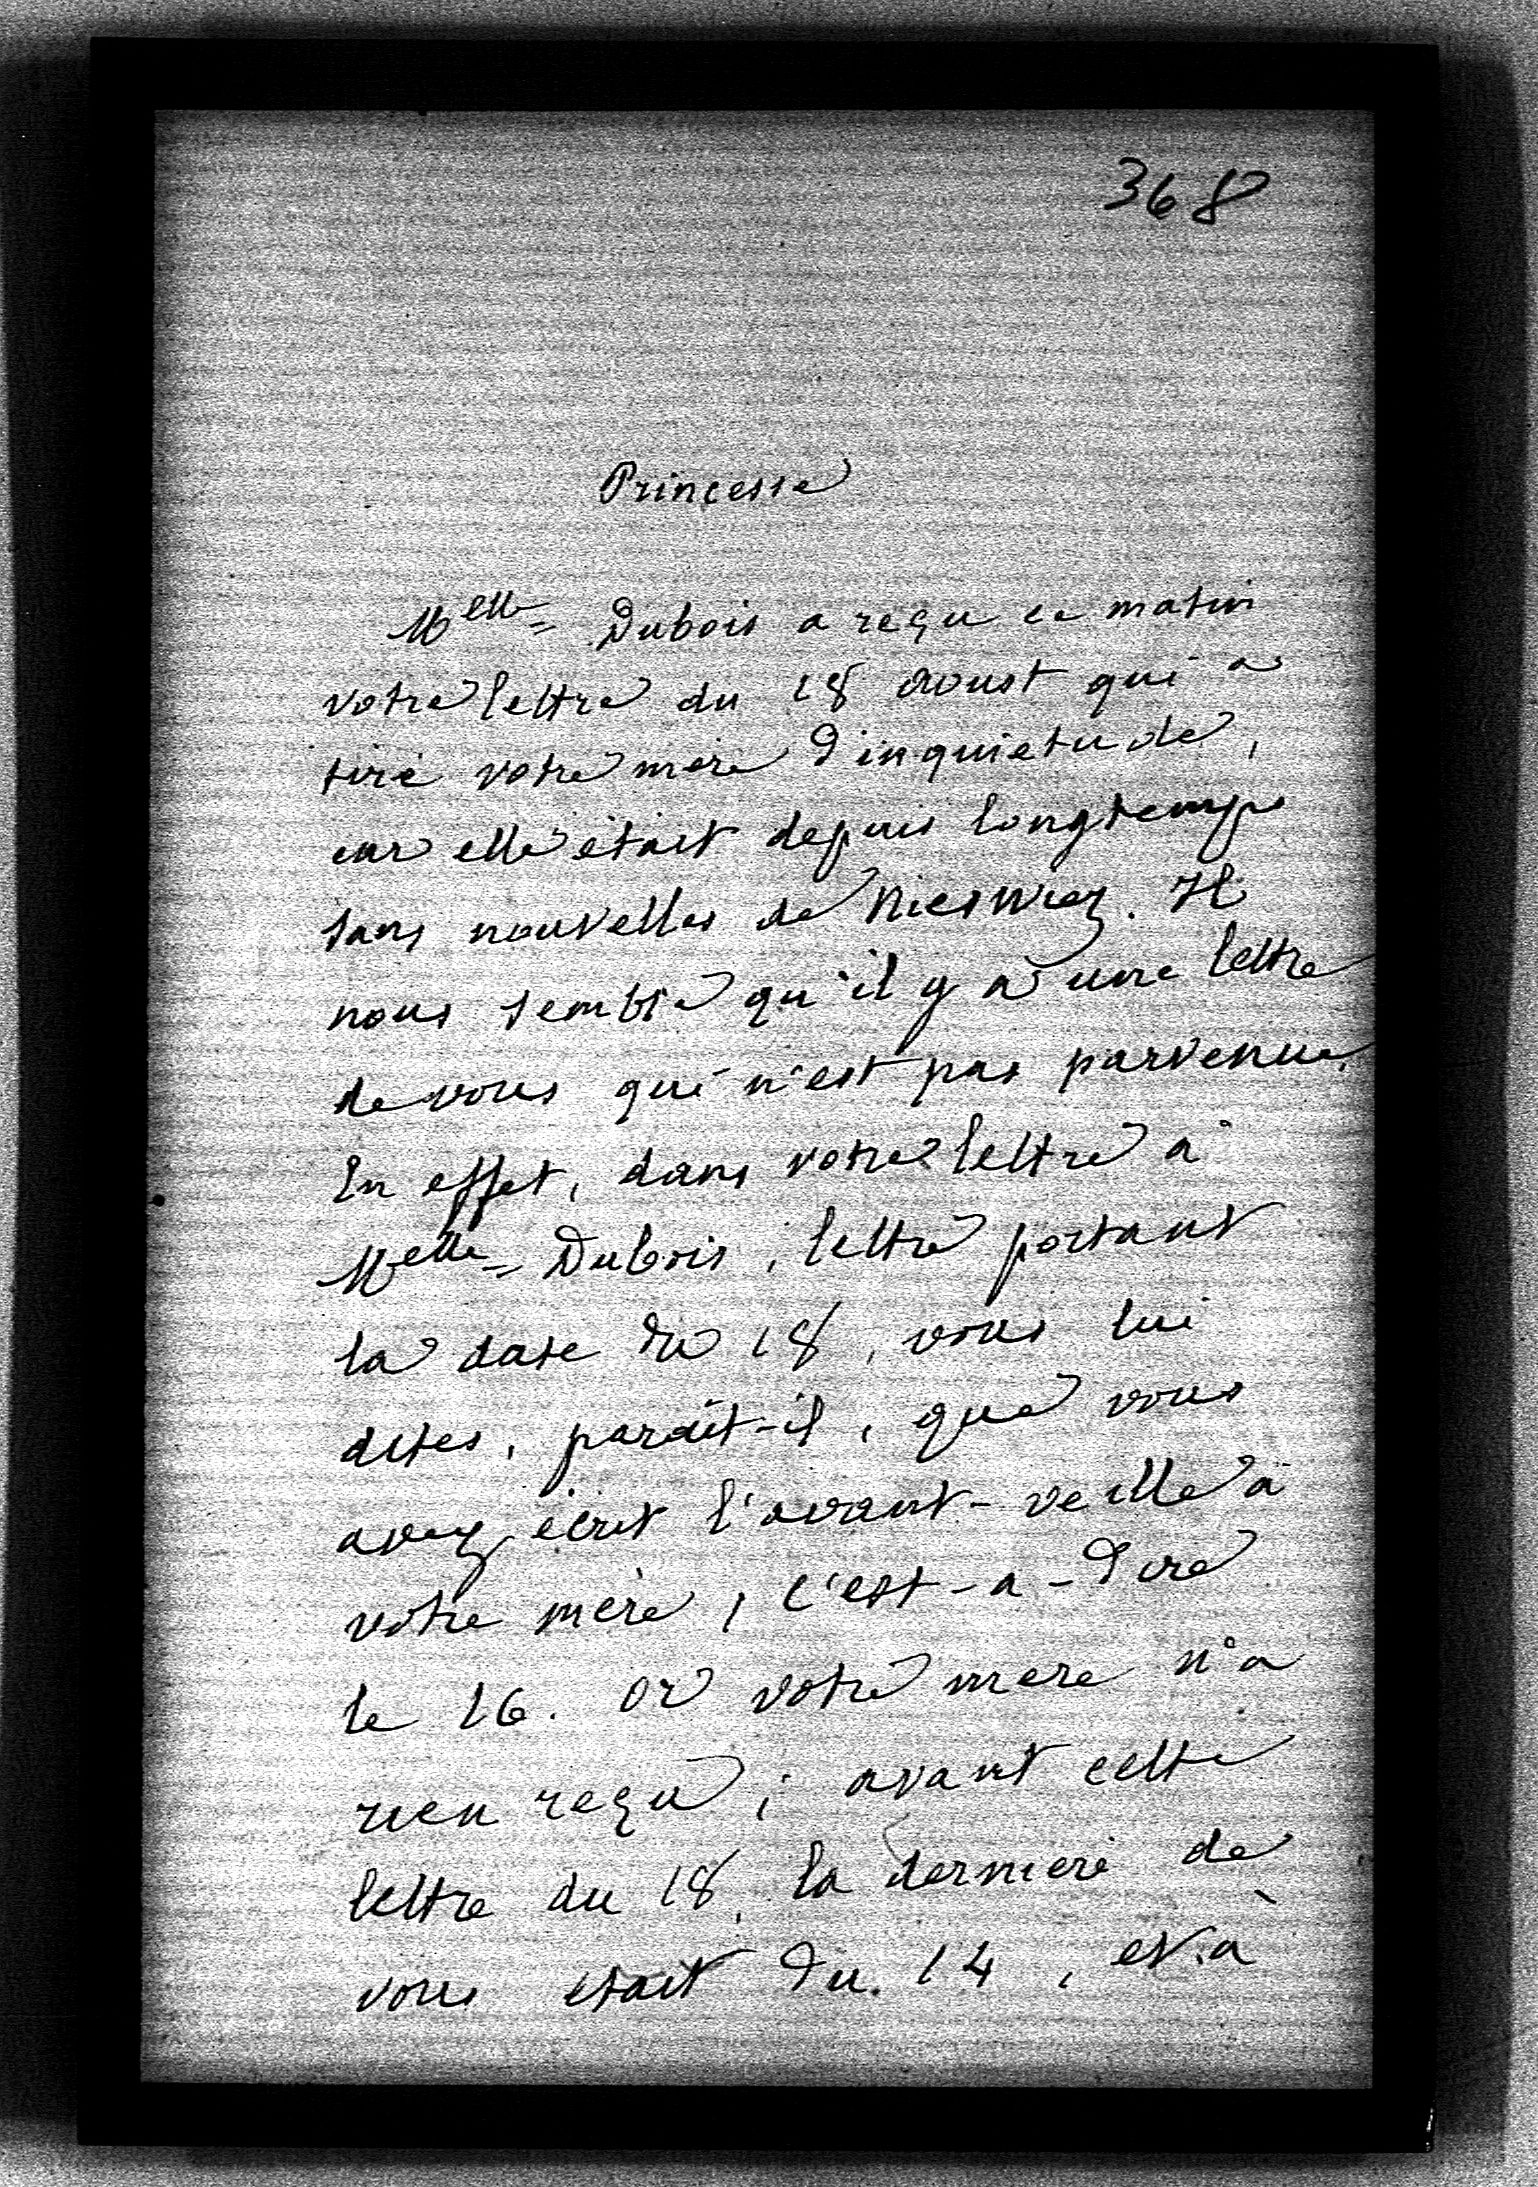 368
Princesse
Melle Dubois a reçu ce matin
votre lettre du 18 Aoust qui a
tiré votre mère d'inquietude,
car elle était depuis longtemps
sans nouvelles de Nieswiez. Il
nous semble qu'il y a une lettre
de vous qui n'est pas parvenue.
En effet, dans votre lettre à
Melle Dubois, lettre portant
la date du 18, vous lui
dites, paraît-il, que vous
avez écrit l'avant-veille à
votre mère, c'est-a-dire
le 16. Or votre mere n'a
rien reçu; avant cette
lettre du 18, la derniere de
vous etait du 14, et à